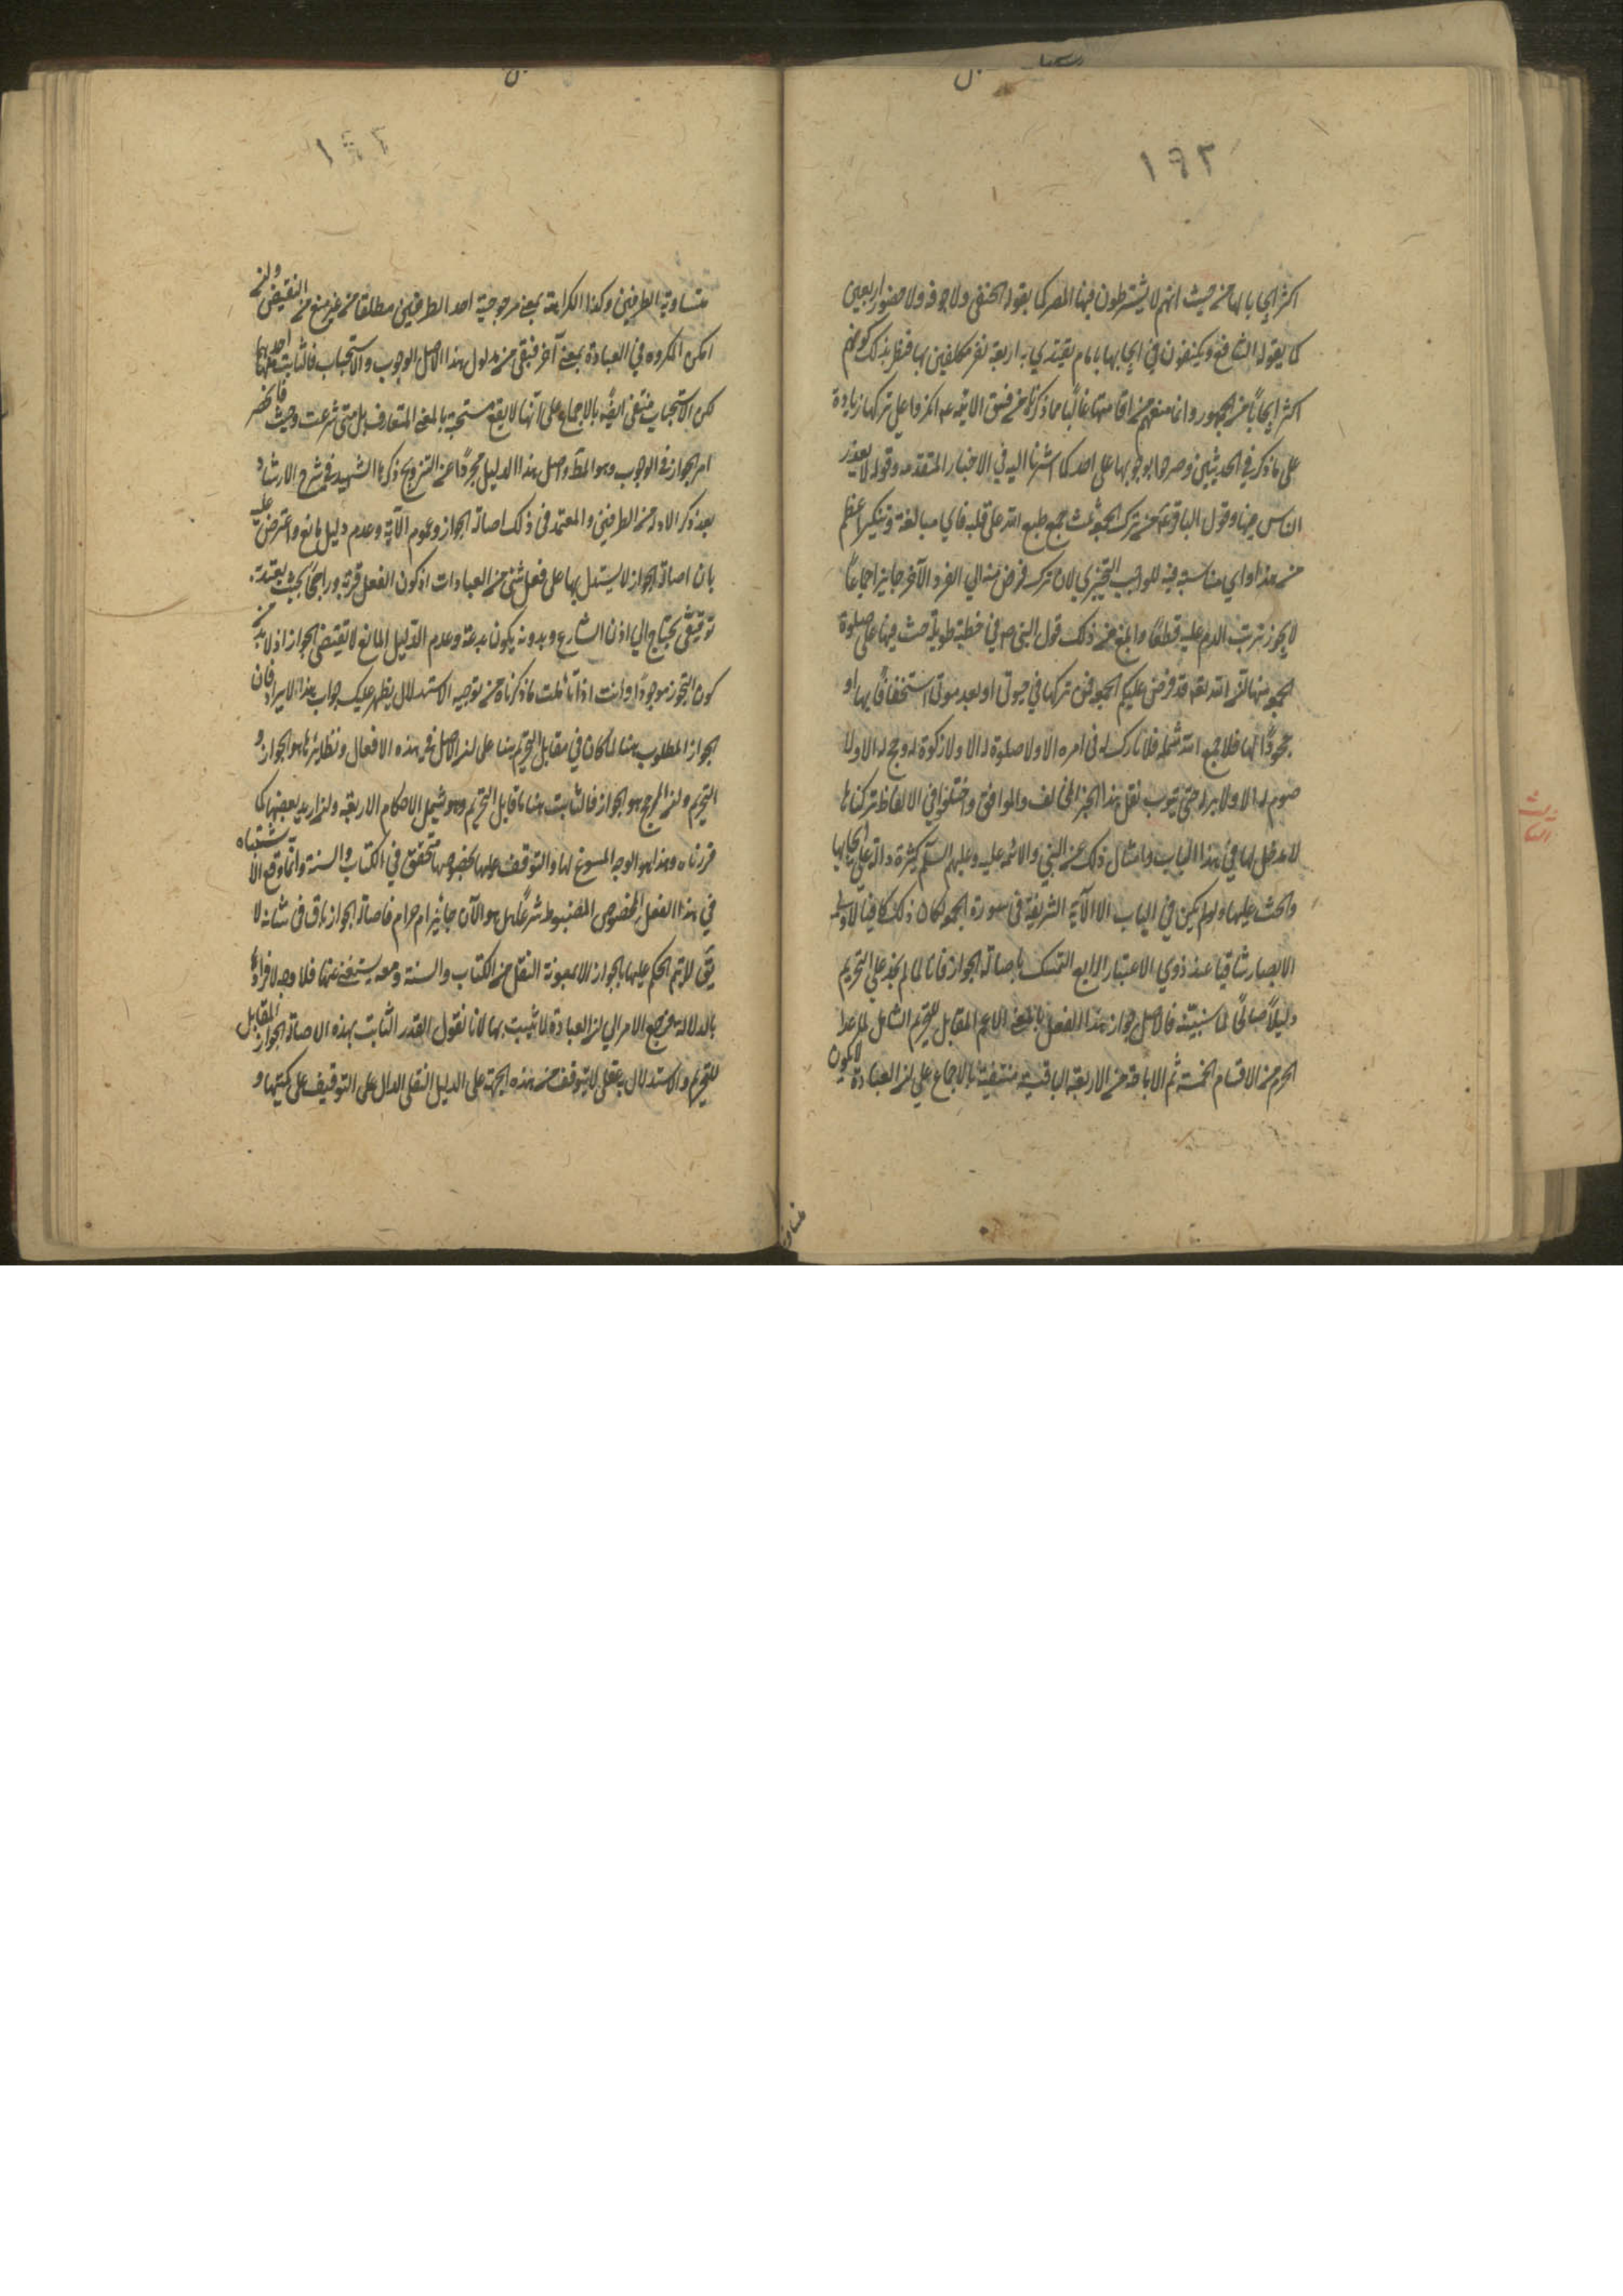 ١٩٢
اكثر ايجابا لها من حيث انهم لا يشترطون فيها المصر كما يقوله الحنفى ولا جوفه ولا حضور اربعين
كما يقوله الشافعى ويكتفون في ايجابها بامام يقتدي به اربعة نفر مكلفين بها فظهر بذلك كونهم
اكثر ايجابًا من الجمهور وانما منعهم من اقامتها غالبًا ما ذكرناه من فسق الائمه
على ما ذكر في الحديثين وصرحوا بوجوبها على احد كما اشرنا اليه في الاخبار المتقدمه وقوله لا يعذر
الناس فيها وقول الباقر ع من ترك الجمعة ثلث جمع طبع الله على قلبه فاي مبالغة وتنكير اعظم
من هذا واي مناسبة فيه للواجب التخييري لان ترك فرض منه الي الفرد الآخر جايز اجماعاً
لا يجوز ترتب الذم عليه قطعًا وابلغ من ذلك قول النبى ص في خطبة طويلة حث فيها على صلوة
الجمعة منها ان الله تعه قد فرض عليكم الجمعة فمن تركها في حيوتى او بعد موتى استخفافًا بها او
جحودًا لها فلا جمع الله شمله ولا بارك له فى امره الا ولا صلوة له الا ولا زكوة له ولا حج له الا ولا
صوم له الا ولا بر له حتى يتوب نقل هذا الخبر المخالف والموافق واختلفوا في الالفاظ تركناها
لا مدخل لها في هذا الباب وامثال ذلك عن النبي والائمه عليه وعليهم السلم كثيرة دالة على ايجابها
والحث عليها ولو لم يكن في الباب الا الآية الشريفة فى سورة الجمعة لكان ذلك كافيا لاولى
الابصار شافيا عند ذوي الاعتبار الرابع التمسك باصالة الجواز فانا لما لم نجد على التحريم
دليلًا صالحًا لما سنبينه فالاصل جواز هذا الفعل بالمعنى الاعم المقابل للتحريم الشامل لما عدا
الحرم من الاقسام الخمسة ثم الاباحة من الاربعة الباقية منتفية بالاجماع على ان العبادة لا تكون
متساوية الطرفين وكذا الكراهة بمعنى مرجوحية احد الطرفين مطلقا من غير منع من النقيض وان
امكن المكروه في العبادة بمعنى آخر فبقى من مدلول هذا الاصل الوجوب والاستحباب فالثابت احدهما
لكن الاستحباب منتفى ايضًا بالاجماع على انها لا يقع مستحبة بالمعنى المتعارف بل متى شرعت وجبت فانحصر
امر الجواز فى الوجوب وهو المط واصل هذا الدليل مجردًا عن التنقيح ذكره الشهيد في شرح الارشاد
بعد ذكر الادلة من الطرفين والمعتمد فى ذلك اصالة الجواز وعموم الآية وعدم دليل مانع واعترض عليه
بان اصالة الجواز لا يستدل بها على فعل شئ من العبادات اذ كون الفعل قربة وراجحًا بحيث يعتد به
توقيفى يحتاج الي اذن الشارع وبدونه يكون بدعة وعدم الدليل المانع لا يقتضى الجواز اذ لا بد من
كون المجوز موجودًا وانت اذا تاملت ما ذكرناه من توجيه الاستدلال يظهر عليك جواب هذا الايراد فان
الجواز المطلوب هنا لما كان في مقابل التحريم بنا على ان الاصل فى هذه الافعال ونظايرها هو الجواز و
التحريم ولان المرجح هو الجواز فالثابت هنا ما قابل التحريم وهو يشمل الاحكام الاربعة وان اريد بعضها كما
قررناه وهذا هو الوجه المسوغ لها والتوقف عليها بخصوصها متحقق في الكتاب والسنة وانما وقع الاشتباه
في هذا الفعل المخصوص المضبوط شرعًا هل هو الآن جايز ام حرام فاصالة الجواز باق فى شانه لا
يقٓ لا يتم الحكم عليها بالجواز الا بمعونة النقل من الكتاب والسنة ومعه يستغنى عنها فلا وجه لافرادها
بالدلالة ويرجع الامر الي ان العبادة لا تثبت بها لانا نقول القدر الثابت بهذه الاصالة الجواز المقابل
للتحريم والاستدلال به عقلى لا يتوقف من هذه الجهة على الدليل النقلى الدال على التوقيف على كيفيتها و